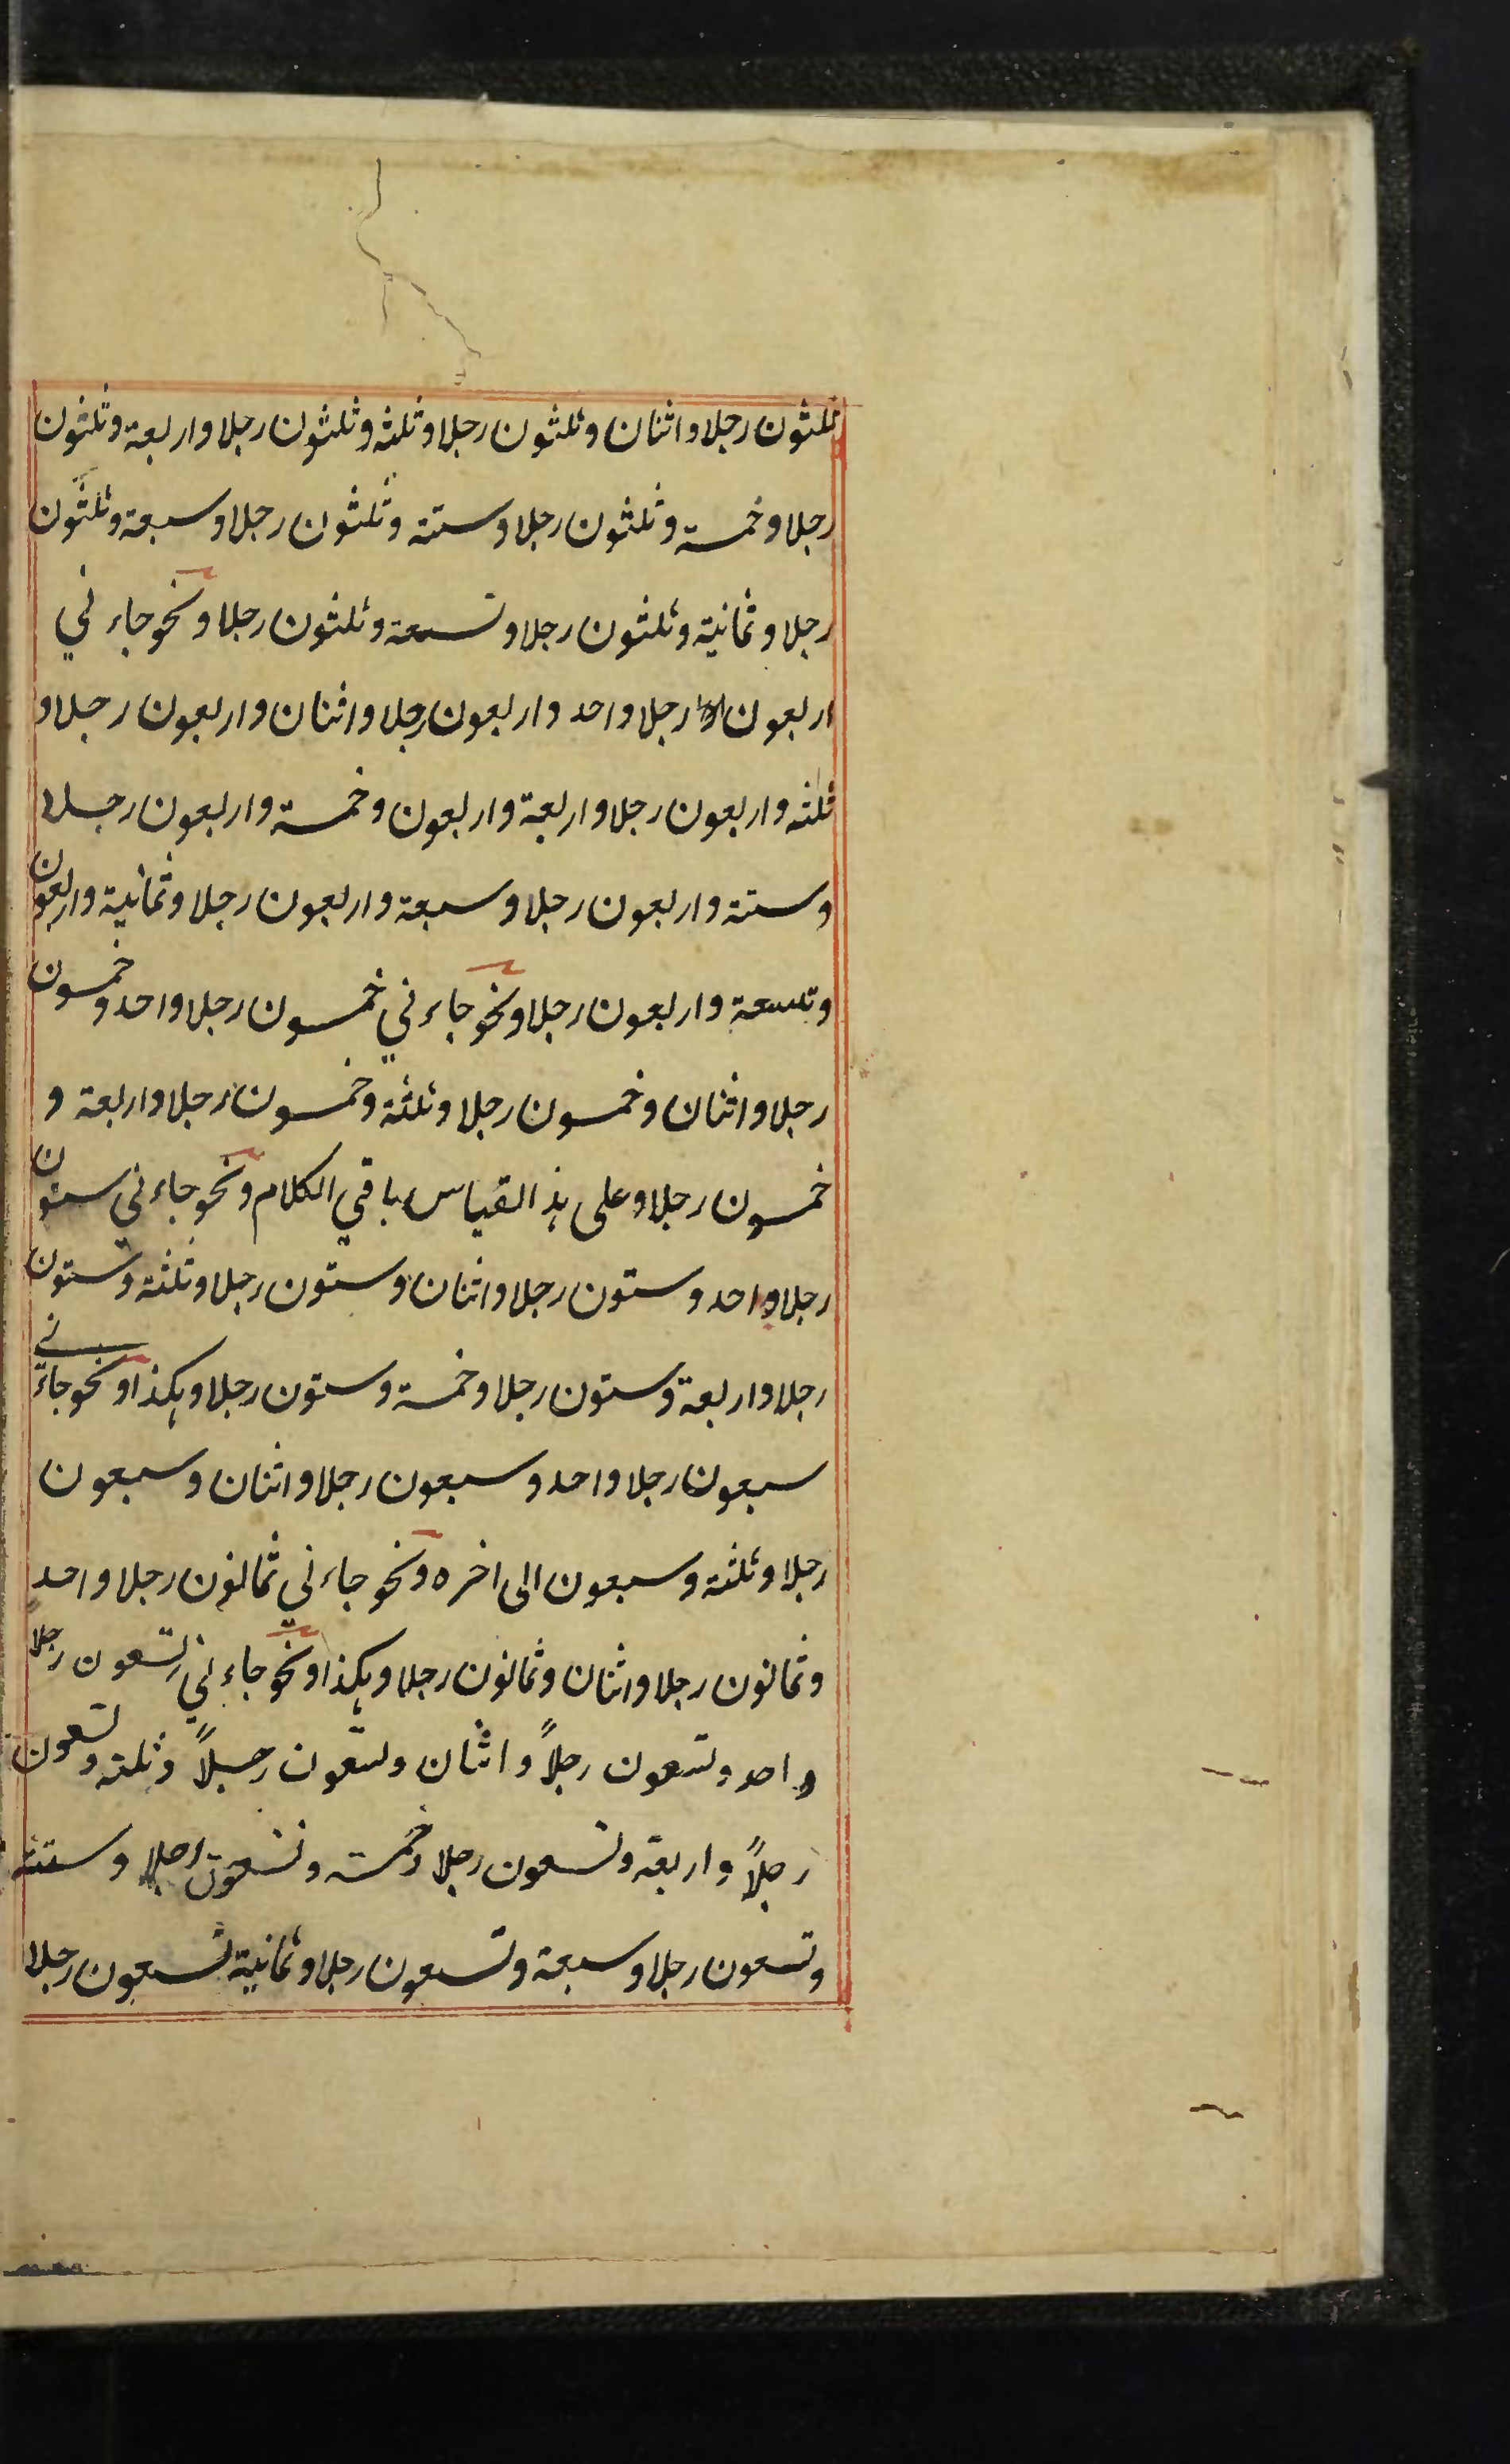 ثلثون رجلا واثنان وثلثون رجلا وثلثه وثلثون رجلا واربعة وثلثون
رجلا وخمسة وثلثون رجلا وستة وثلثون رجلا وسبعة وثلثون
رجلا وثمانية وثلثون رجلا وتسعة وثلثون رجلا ونحو جاءني
اربعون رجلا واحد واربعون رجلا واثنان واربعون رجلا و
ثلثه واربعون رجلا واربعة واربعون وخمسة واربعون رجلا
وستة واربعون رجلا وسبعة واربعون رجلا وثمانية واربعون
وتسعة واربعون رجلا ونحو جاءني خمسون رجلا واحد وخمسون
رجلا واثنان وخمسون رجلا وثلثة وخمسون رجلا واربعة و
خمسون رجلا وعلى هذ القياس باقي الكلام ونحو جاءني ستون
رجلا واحد وستون رجلا واثنان وستون رجلا وثلثة وستون
رجلا واربعة وستون رجلا وخمسة وستون رجلا وهكذا ونحو جاءني
سبعون رجلا واحد وسبعون رجلا واثنان وسبعون
رجلا وثلثة وسبعون الى اخره ونحو جاءني ثمانون رجلا واحد
وثمانون رجلا واثنان وثمانون رجلا وهكذا ونحو جاءني تسعون رجلا
واحد وتسعون رجلاً واثنان وتسعون رجلاً وثلثه وتسعون
رجلاً واربعة وتسعون رجلا وخمسة وتسعون رجلا وستة
وتسعون رجلا وسبعة وتسعون رجلا وثمانية تسعون رجلا